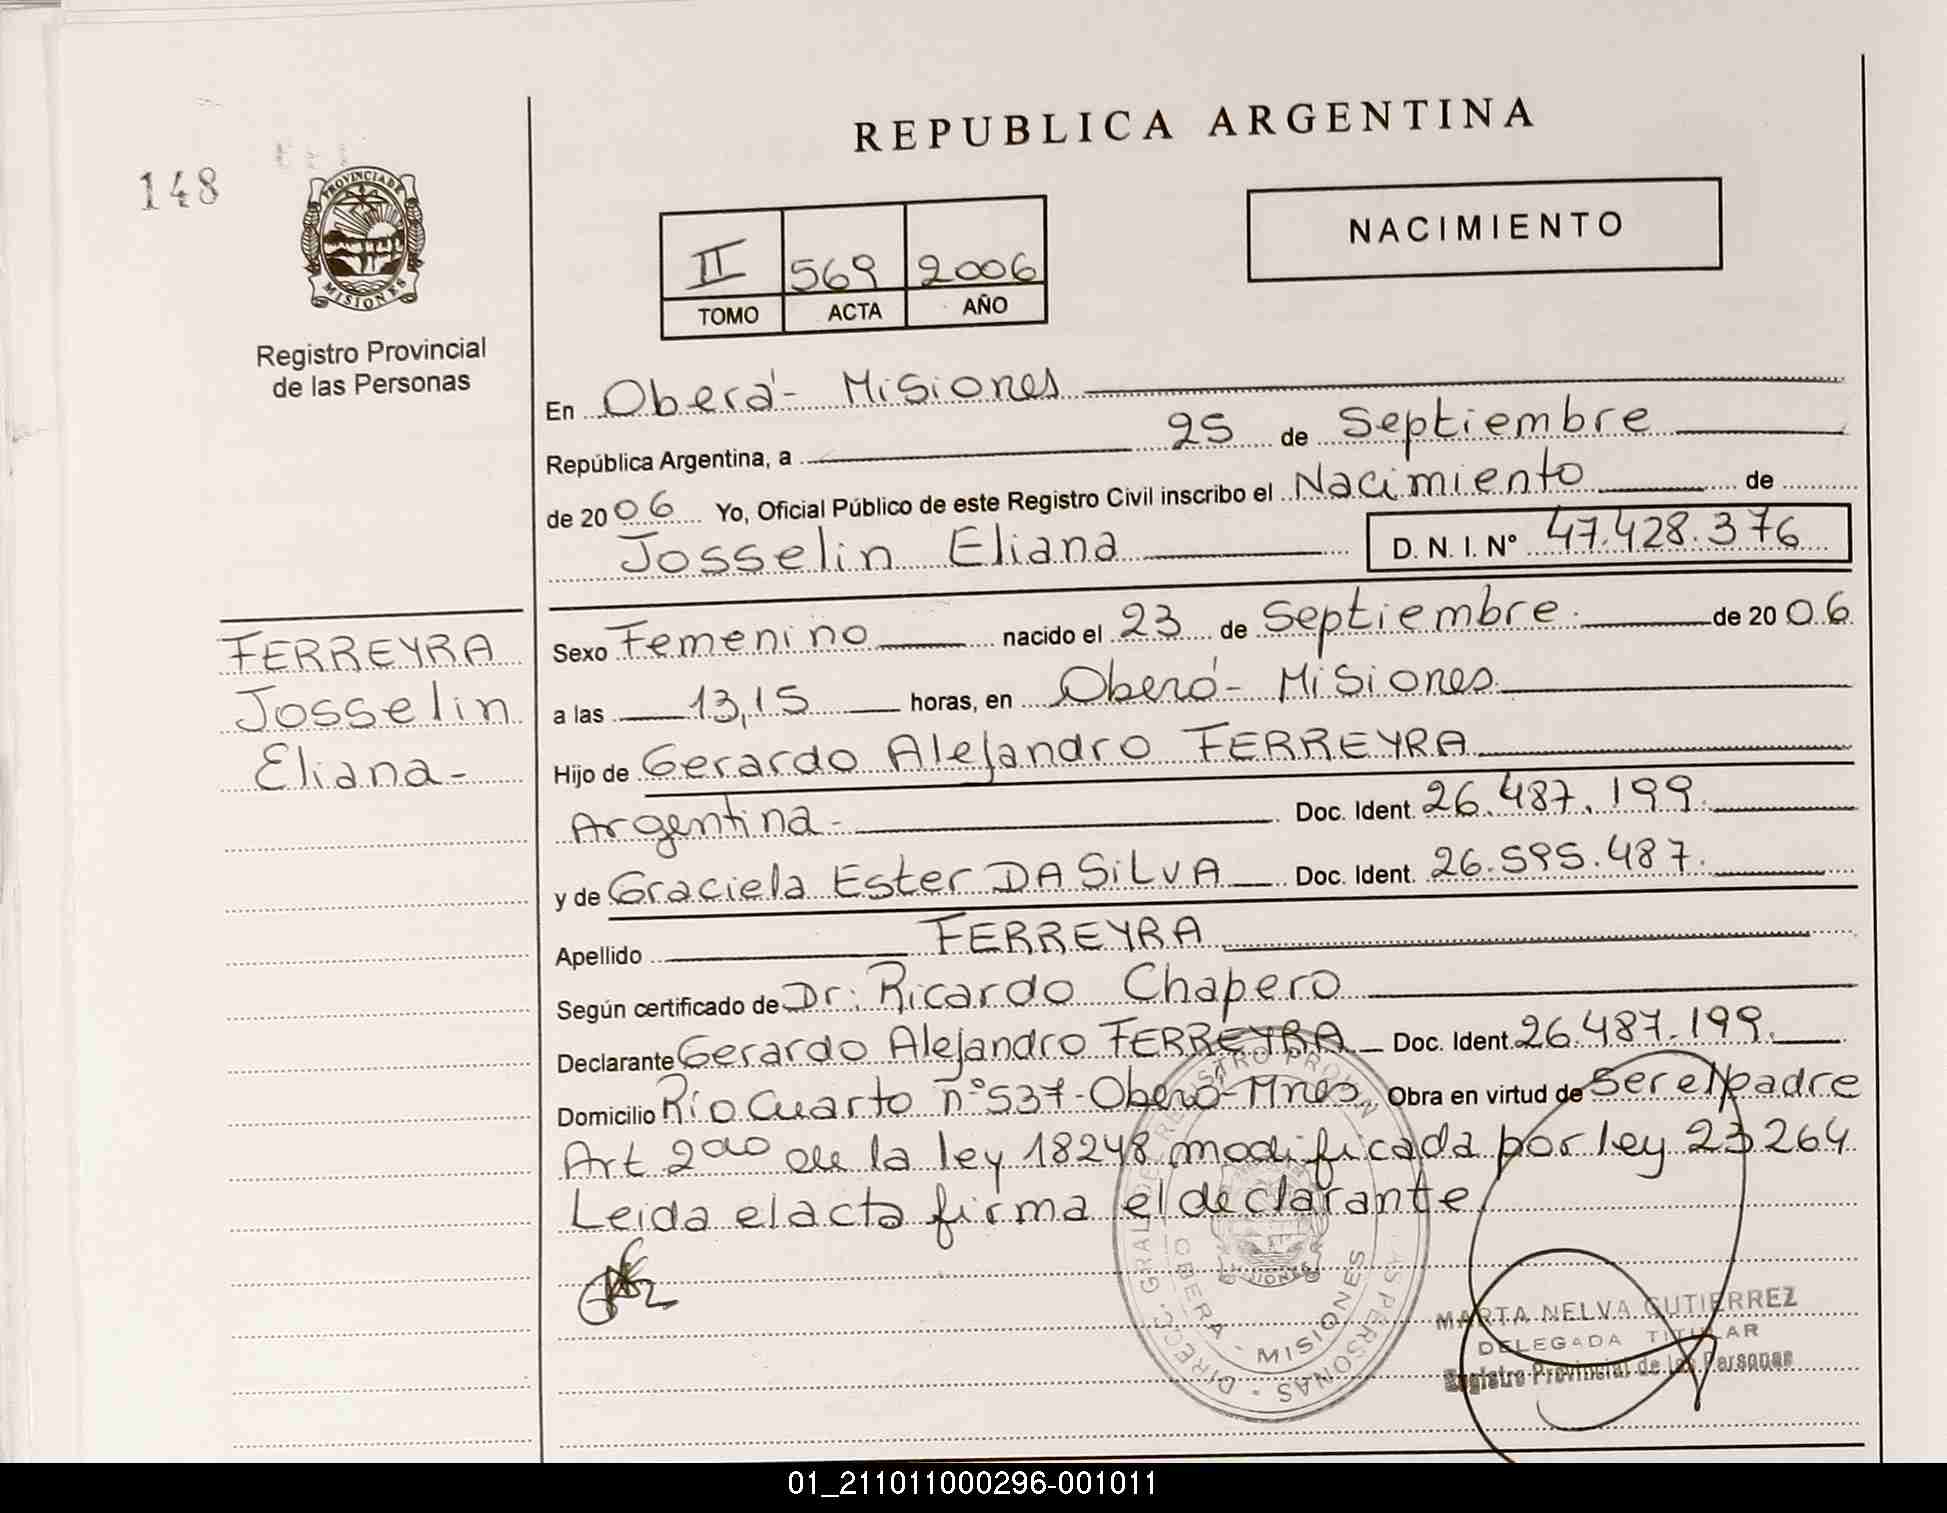 148
PROVINCIA DE
MISIONES
Registro Provincial
de las Personas
REPUBLICA ARGENTINA
NACIMIENTO
II 569 2006
TOMO ACTA AÑO
En Oberá - Misiones
República Argentina, a 25 de Septiembre
de 2006 Yo, Oficial Público de este Registro Civil inscribo el Nacimiento de
Josselin Eliana D. N. I. N° 47.428.376
FERREYRA
Josselin
Eliana -
Sexo Femenino nacido el 23 de Septiembre. de 2006.
a las 13,15 horas, en Oberá - Misiones
Hijo de Gerardo Alejandro FERREYRA
Argentina - Doc. Ident. 26.487.199.
y de Graciela Ester DA SiLVA Doc. Ident. 26.595.487.
Apellido FERREYRA
Según certificado de Dr: Ricardo Chapero
Declarante Gerardo Alejandro FERREYRA Doc. Ident. 26.487.199.
Domicilio Río Cuarto n° 537 - Oberá - Mnes. Obra en virtud de Ser el padre
Art 2do de la ley 18248 modificada por ley 23264.
Leida el acta firma el declarante
OBERA - MISIONES
MARTA NELVA GUTIERREZ
DELEGADA TITULAR
Registro Provincial de las Personas
01_211011000296-001011